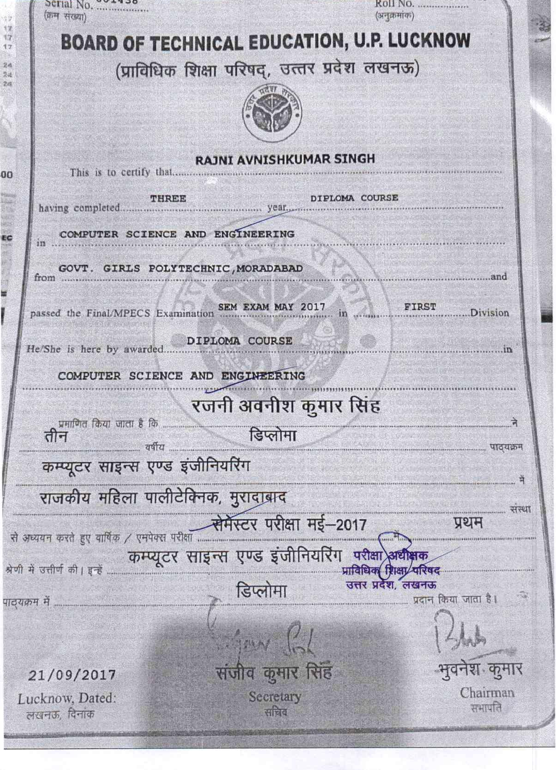 Serial No. 001438
Roll No.
(क्रम संख्या)
(अनुक्रमांक)
BOARD OF TECHNICAL EDUCATION, U.P. LUCKNOW
(प्राविधिक शिक्षा परिषद्, उत्तर प्रदेश लखनऊ)
उत्तर प्रदेश सरकार
RAJNI AVNISHKUMAR SINGH
This is to certify that
THREE DIPLOMA COURSE
having completed year
in COMPUTER SCIENCE AND ENGINEERING
from GOVT. GIRLS POLYTECHNIC,MORADABAD and
passed the Final/MPECS Examination SEM EXAM MAY 2017 in FIRST Division
He/She is here by awarded DIPLOMA COURSE in
COMPUTER SCIENCE AND ENGINEERING
रजनी अवनीश कुमार सिंह
प्रमाणित किया जाता है कि ने
तीन डिप्लोमा
वर्षीय पाठ्यक्रम
कम्प्यूटर साइन्स एण्ड इंजीनियरिंग
में
राजकीय महिला पालीटेक्निक, मुरादाबाद
संस्था
सेमेस्टर परीक्षा मई-2017 प्रथम
से अध्ययन करते हुए वार्षिक / एमपेक्स परीक्षा में
कम्प्यूटर साइन्स एण्ड इंजीनियरिंग
श्रेणी में उत्तीर्ण की। इन्हें
परीक्षा अधीक्षक
प्राविधिक शिक्षा परिषद
उत्तर प्रदेश, लखनऊ
डिप्लोमा
पाठ्यक्रम में प्रदान किया जाता है।
21/09/2017 संजीव कुमार सिंह भुवनेश कुमार
Lucknow, Dated: Secretary Chairman
लखनऊ, दिनांक सचिव सभापति